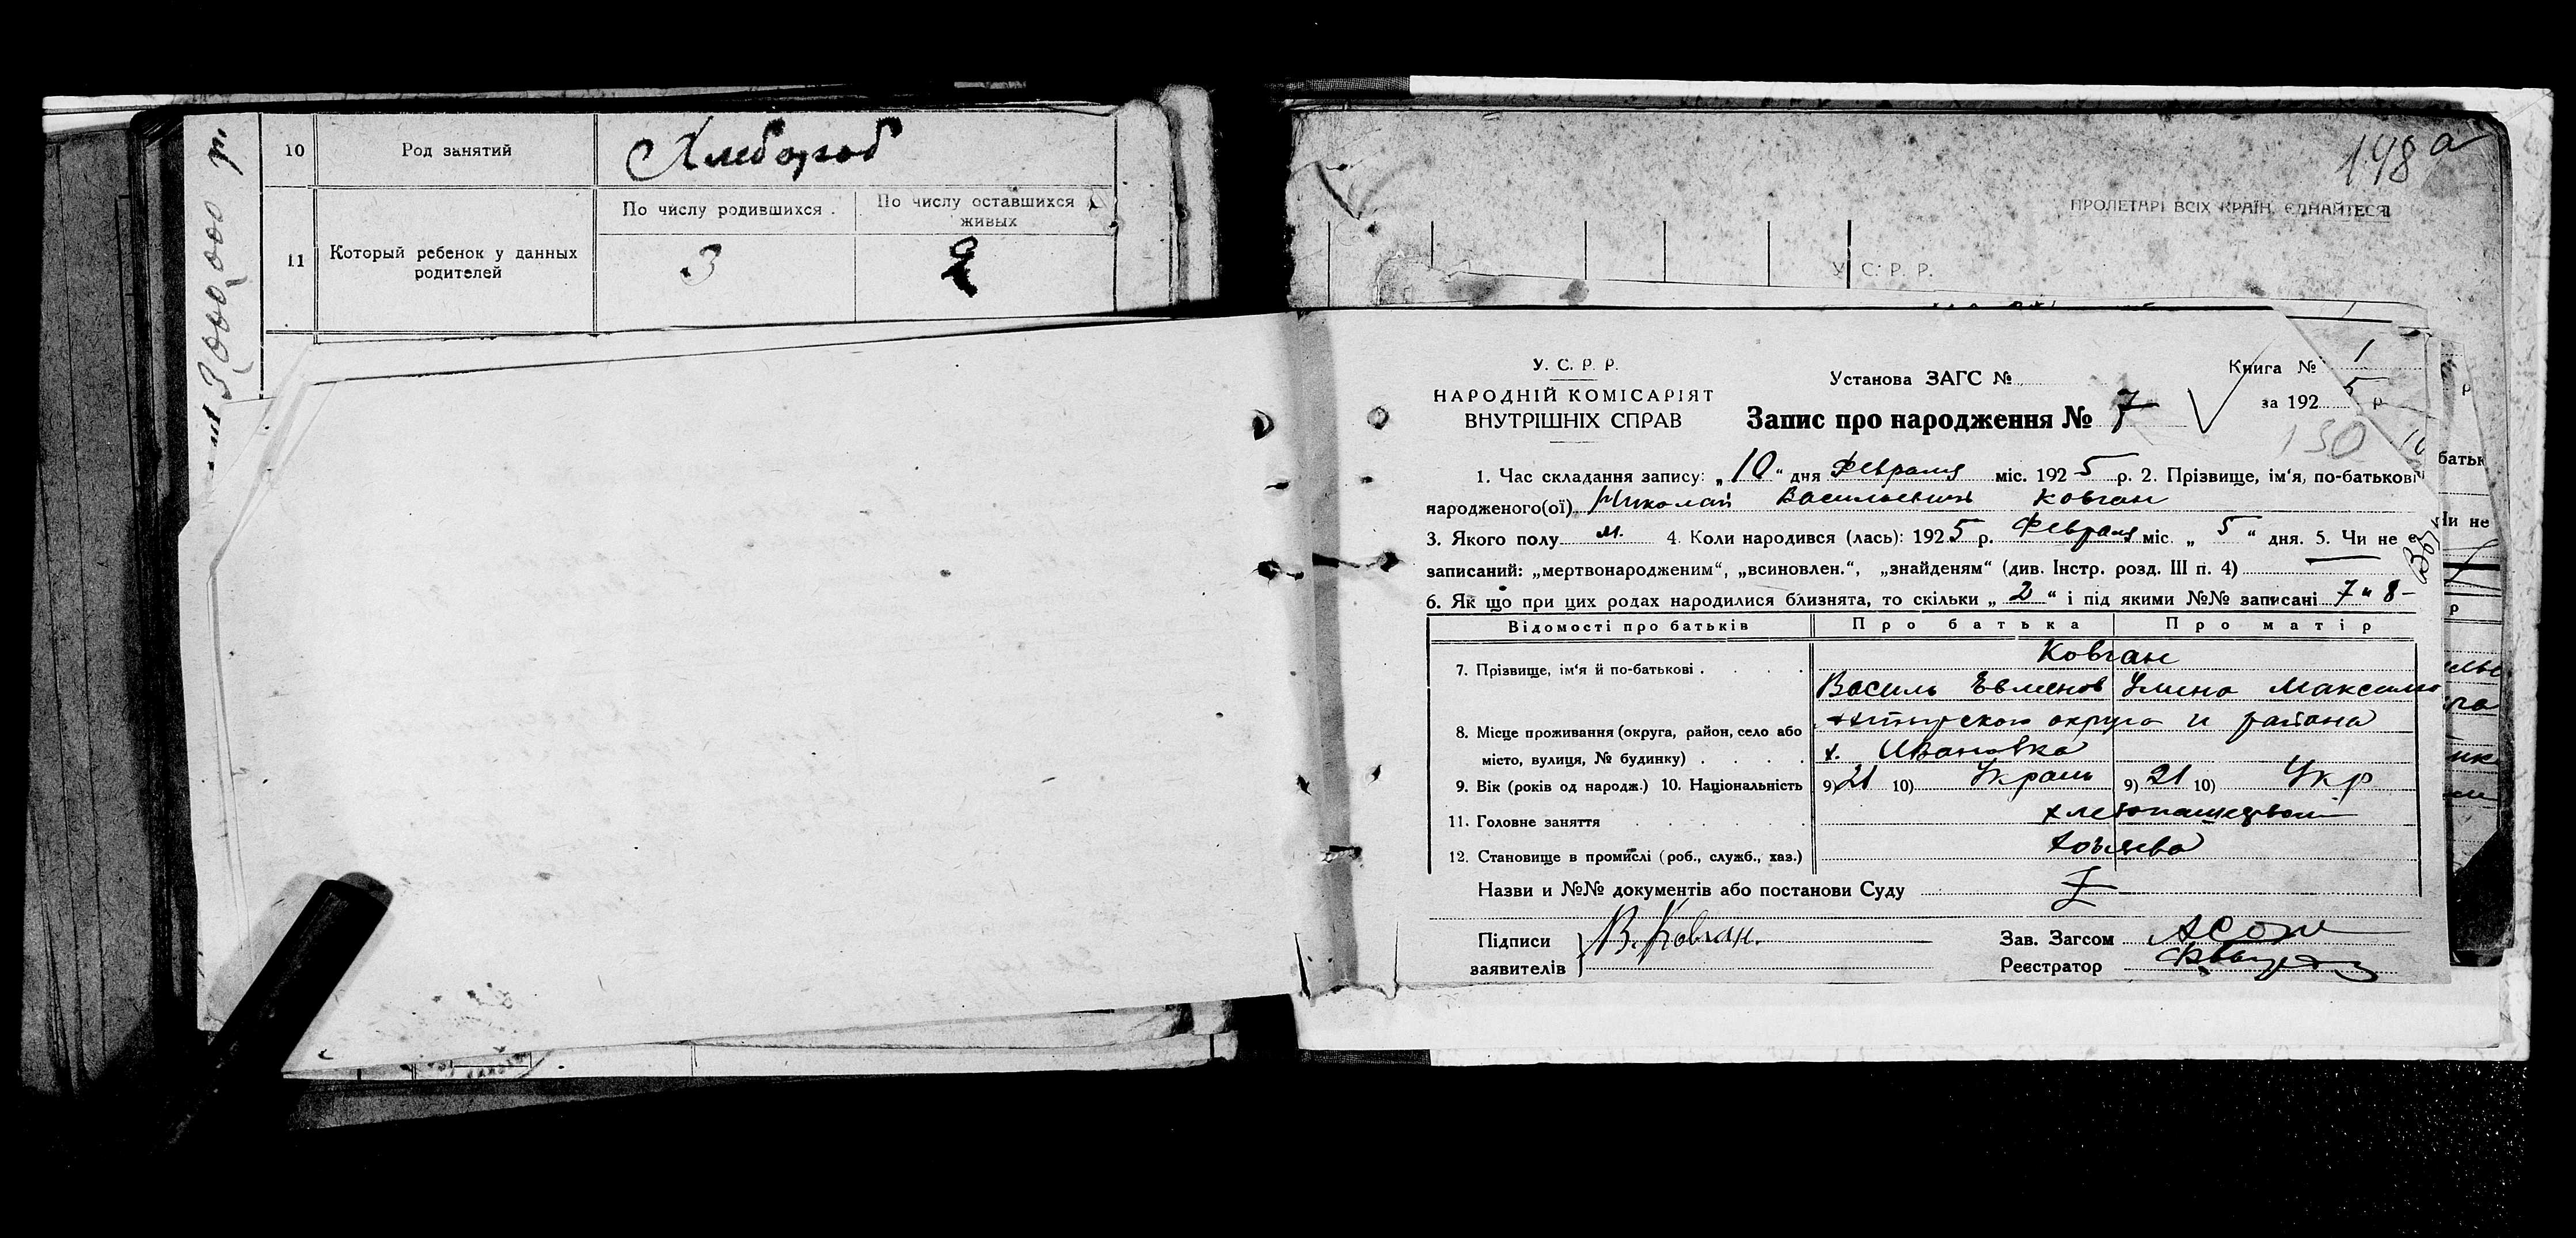 10 Род занятий Хлебороб
11 Который ребенок у данных родителей
По числу родившихся
По числу оставшихся живых
3
3000,000 р.
198 а
ПРОЛЕТАРІ ВСІХ КРАЇН, ЄДНАЙТЕСЯ
У. С. Р. Р.
У. С. Р. Р.
НАРОДНІЙ КОМІСАРІЯТ
ВНУТРІШНІХ СПРАВ
Установа ЗАГС №
Книга № 1
за 192 5 р
Запис про народження № 7
150
1. Час складання запису: „ 10 “ дня Февраля міс. 192 5 р. 2. Прізвище, ім‘я, по-батькові
народженого(ої) Николай Васильевич Ковган
3. Якого полу м. 4. Коли народився (лась): 192 5 р. Февраля міс. „ 5 “ дня. 5. Чи не є
записаний: „мертвонародженим“, „всиновлен.“, „знайденям“ (див. Інстр. розд. III п. 4) —
6. Як що при цих родах народилися близнята, то скільки „ 2 “ і під якими №№ записані 7 и 8 –
Відомості про батьків Про батька Про матір
7. Прізвище, ім‘я й по-батькові . . . . Ковган
Василь Евменов
Максимо
8. Місце проживання (округа, район, село або
місто, вулиця, № будинку) . . . .
округа и района
х. Ивановка
9. Вік (років од народж.) 10. Національність 9) 21 10) Украин 9) 21 10) Укр
11. Головне заняття . . . . .
12. Становище в промислі (роб., служб., хаз.)
Назви и №№ документів або постанови Суду
Підписи
заявителів
В. Ковган.
Зав. Загсом
Реєстратор
батьк
Чи не